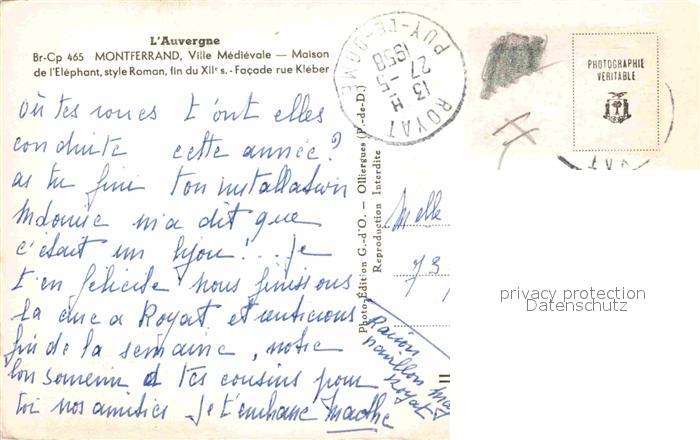 L'Auvergne
Br-Cp 465 MONTFERRAND, Ville Médiévale — Maison
de l'Eléphant, style Roman, fin du XIIe s. - Façade rue Kléber
ROYAT
PUY-DE-DOME
13 H
27 -5
1958
PHOTOGRAPHIE
VÉRITABLE
Photo-Edition G.-d'O. - Olliergues (P.-de-D.)
Reproduction Interdite
Où tes roues t'ont elles
conduite cette année?
as tu fini ton installation
m'a dit que
c'était un bijou!.. Je
t'en félicite nous finissons
la cure a Royat et rentrerons
fin de la semaine, notre
bon souvenir à tes cousins pour
toi nos amitiés Je t'embrasse Marthe
Melle
73
pavillon
Royat
privacy protection
Datenschutz